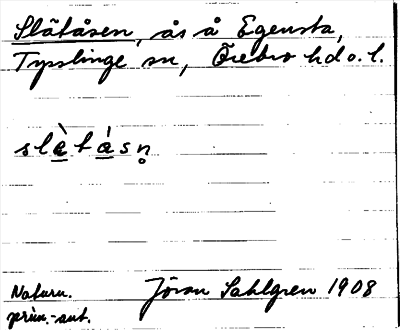 Slätåsen, ås å Egensta,
Tysslinge sn, Örebro hd o. l.
slè̲tá̲sn̥
Naturn.
prim.-ant.
Jöran Sahlgren 1908